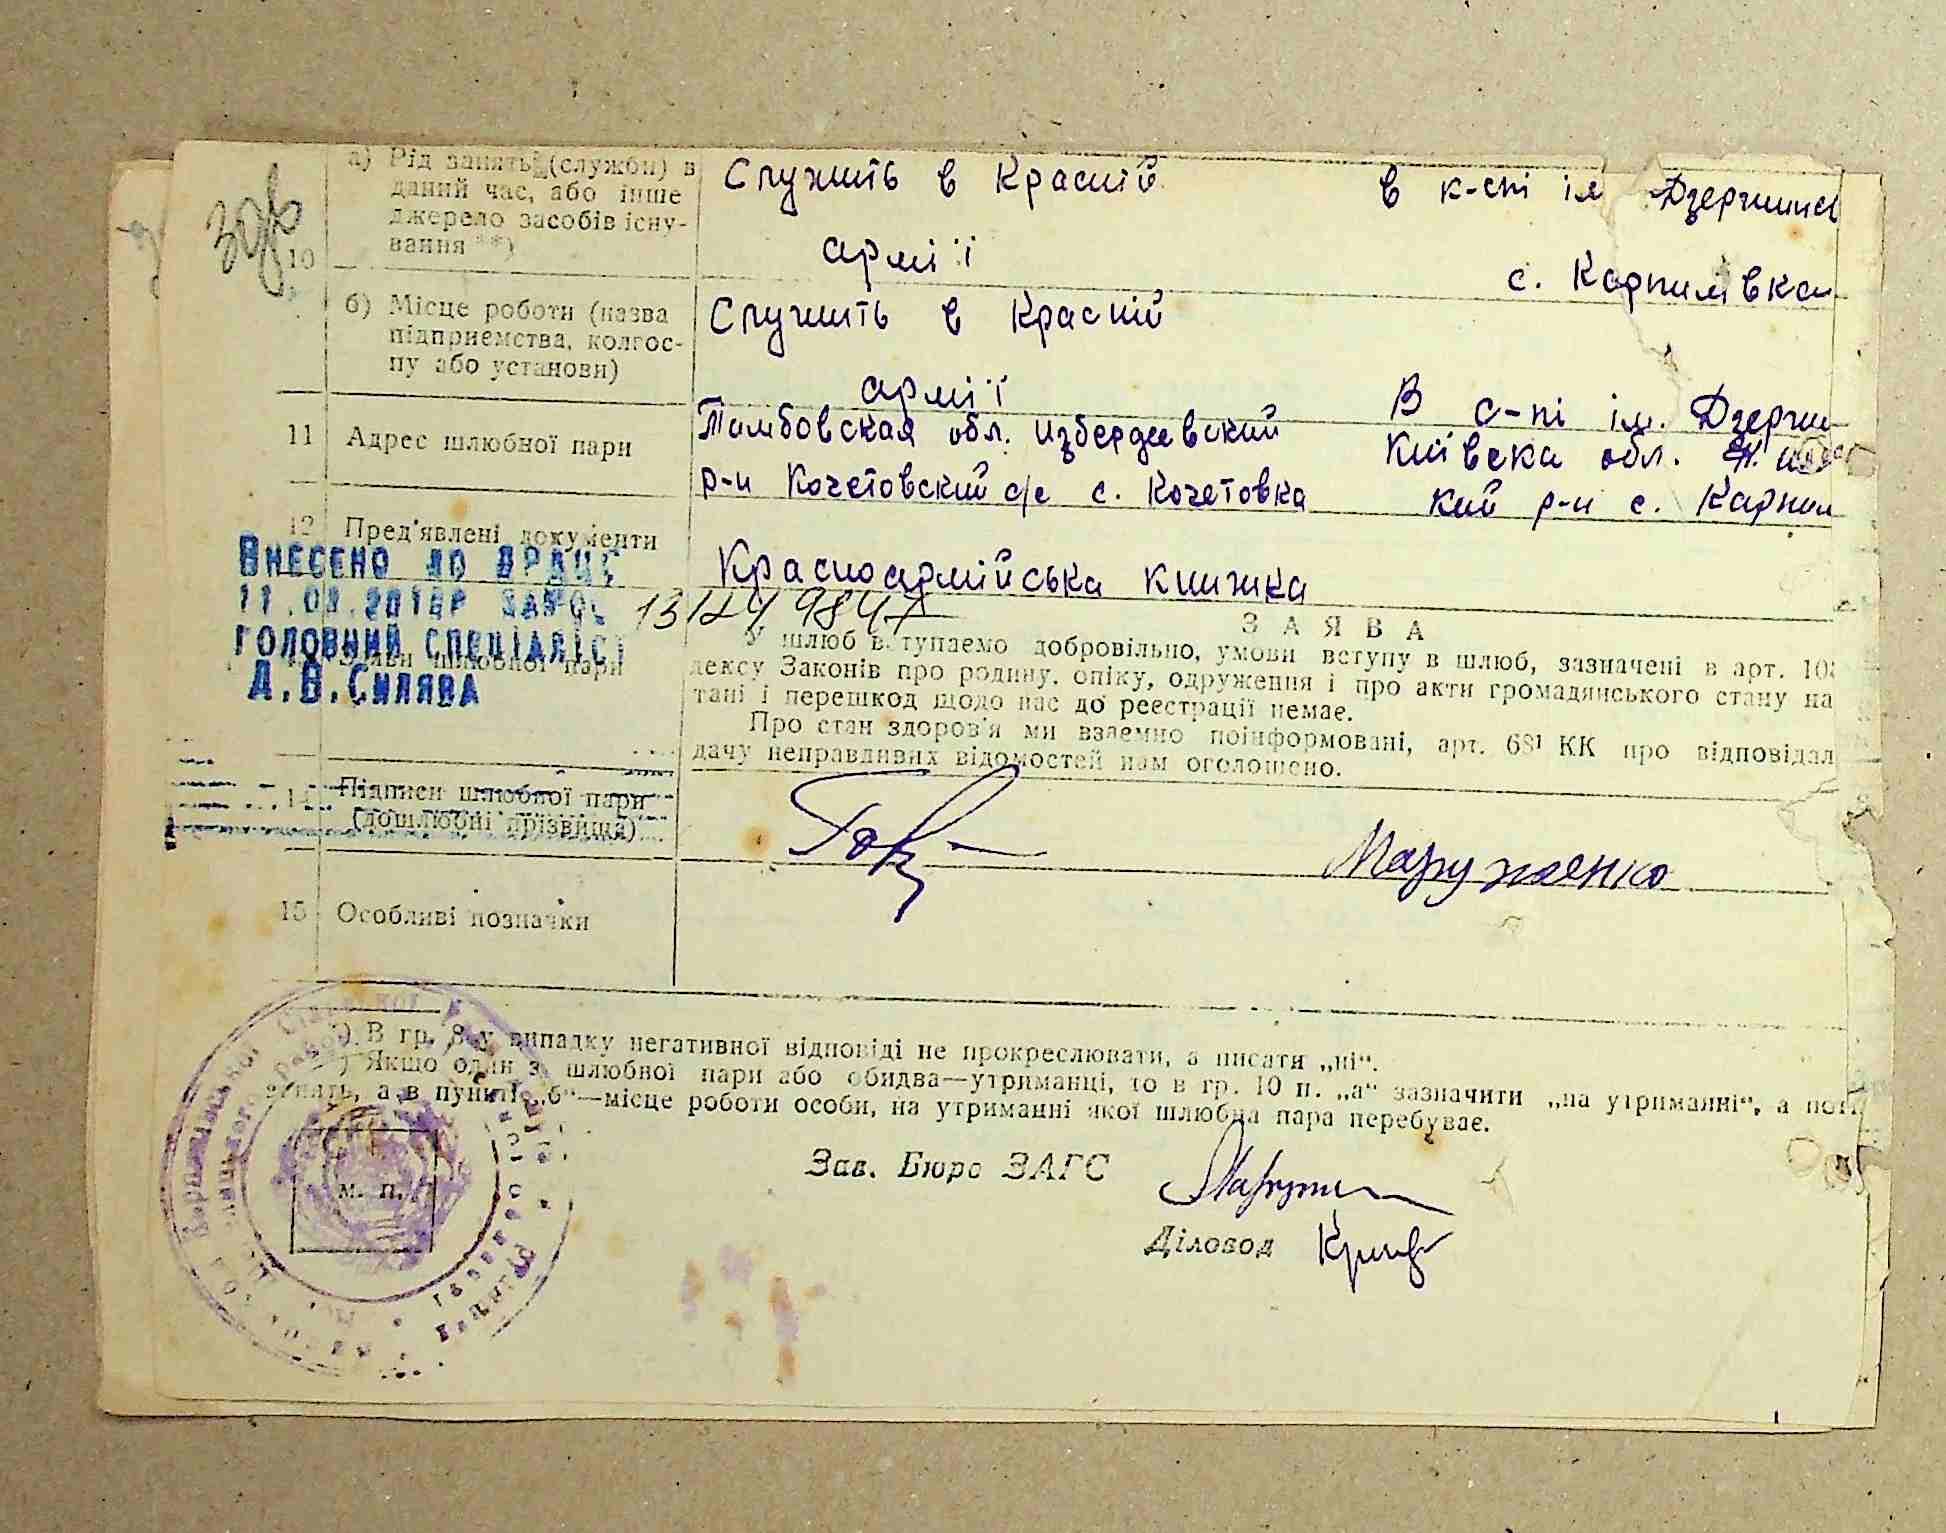 а) Рід занять (служби) в
даний час, або інше
джерело засобів існу-
вання **)
10
Служить в Красній
армії
в к-спі ім Дзержинс
с. Карпилівка
б) Місце роботи (назва
підприємства, колгос-
пу або установи)
Служить в Красній
армії
В с-пі ім. Дзержи
11 Адрес шлюбної пари
Тамбовская обл. Избердеевский
р-н Кочетовский с/с с. Кочетовка
Київска обл.
кий р-н с. Карпил
12 Пред'явлені документи
Красноармійська книжка
ВНЕСЕНО ДО ДРАЦС
ГОЛОВНИЙ СПЕЦІАЛІСТ
А.В.СИЛЯВА
шлюбної пари
ЗАЯВА
У шлюб вступаємо добровільно, умови вступу в шлюб, зазначені в арт. 10
дексу Законів про родину, опіку, одруження і про акти громадянського стану на
тані і перешкод щодо нас до реєстрації немає.
Про стан здоров'я ми взаємно поінформовані, арт. 68¹ КК про відповідал
дачу неправдивих відомостей нам оголошено.
14 Підписи шлюбної пари
(дошлюбні прізвища)
Маруженко
15 Особливі позначки
*) В гр. 8 у випадку негативної відповіді не прокреслювати, а писати „ні“.
) Якщо один з шлюбної пари або обидва—утриманці, то в гр. 10 п. „а“ зазначити „на утриманні“, а
занять, а в пункті „б“—місце роботи особи, на утриманні якої шлюбна пара перебуває.
Зав. Бюро ЗАГС
Діловод
м. п.